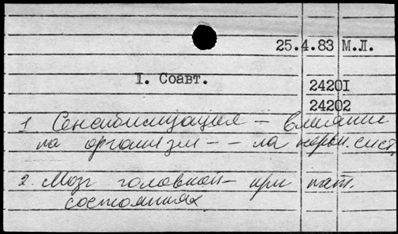 25.4.83 М.Л.
I. Соавт.
24201
24202
1 Сенсибилизация — влияние
на организм — — на нервн. сист.
2. Мозг головной — при пат.
состояниях